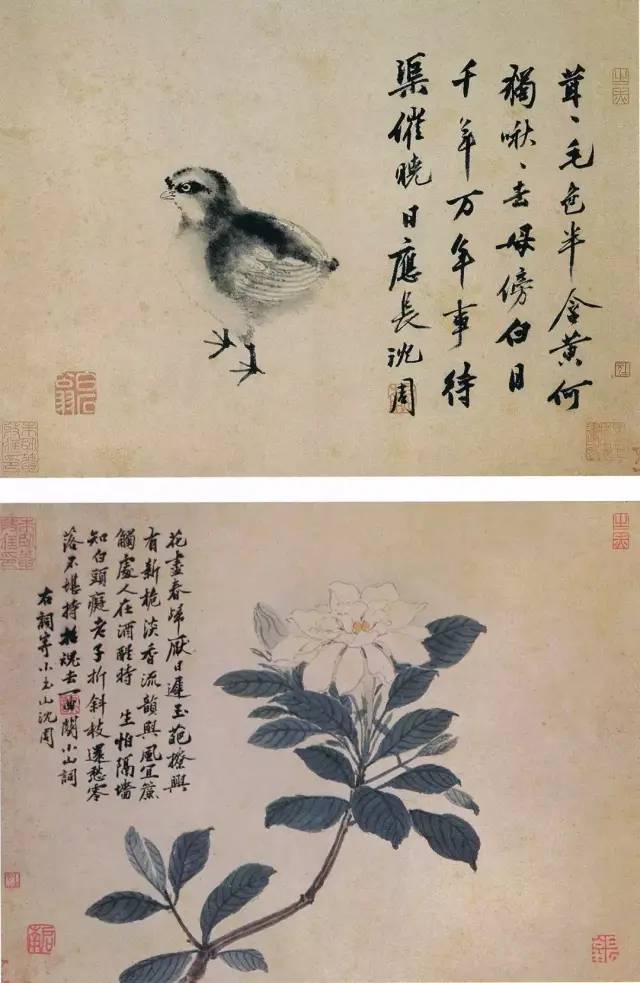 茸〻毛色半含黄何
獨啾〻去母傍白日
千年万年事待
渠催曉日應長沈周
白石翁
花盡春歸厭日遲玉葩撩興
有新梔淡香流韻與風宜簾
觸處人在酒醒時 生怕隔墻
知白頭癡老子折斜枝還愁零
落不堪持招魂去一曲小山詞
右詞寄小玉山沈周
啟南